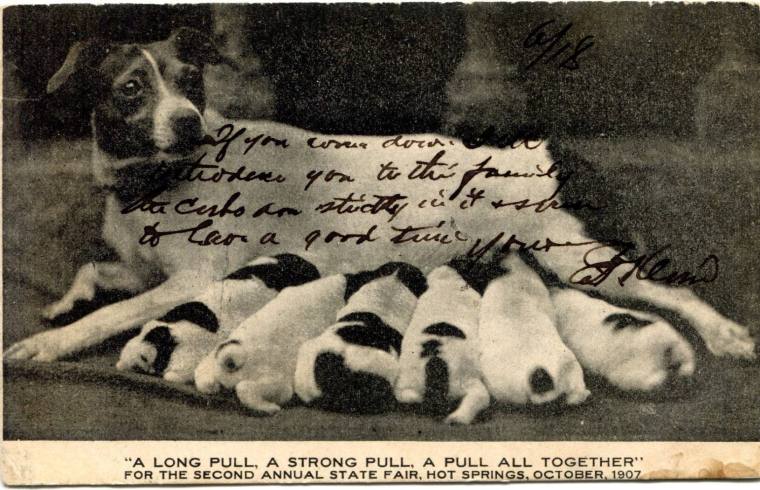 6/18
If you come down I'll
introduce you to the family
the are strictly in it
to have a good time yours
"A LONG PULL, A STRONG PULL, A PULL ALL TOGETHER"
FOR THE SECOND ANNUAL STATE FAIR, HOT SPRINGS, OCTOBER, 1907